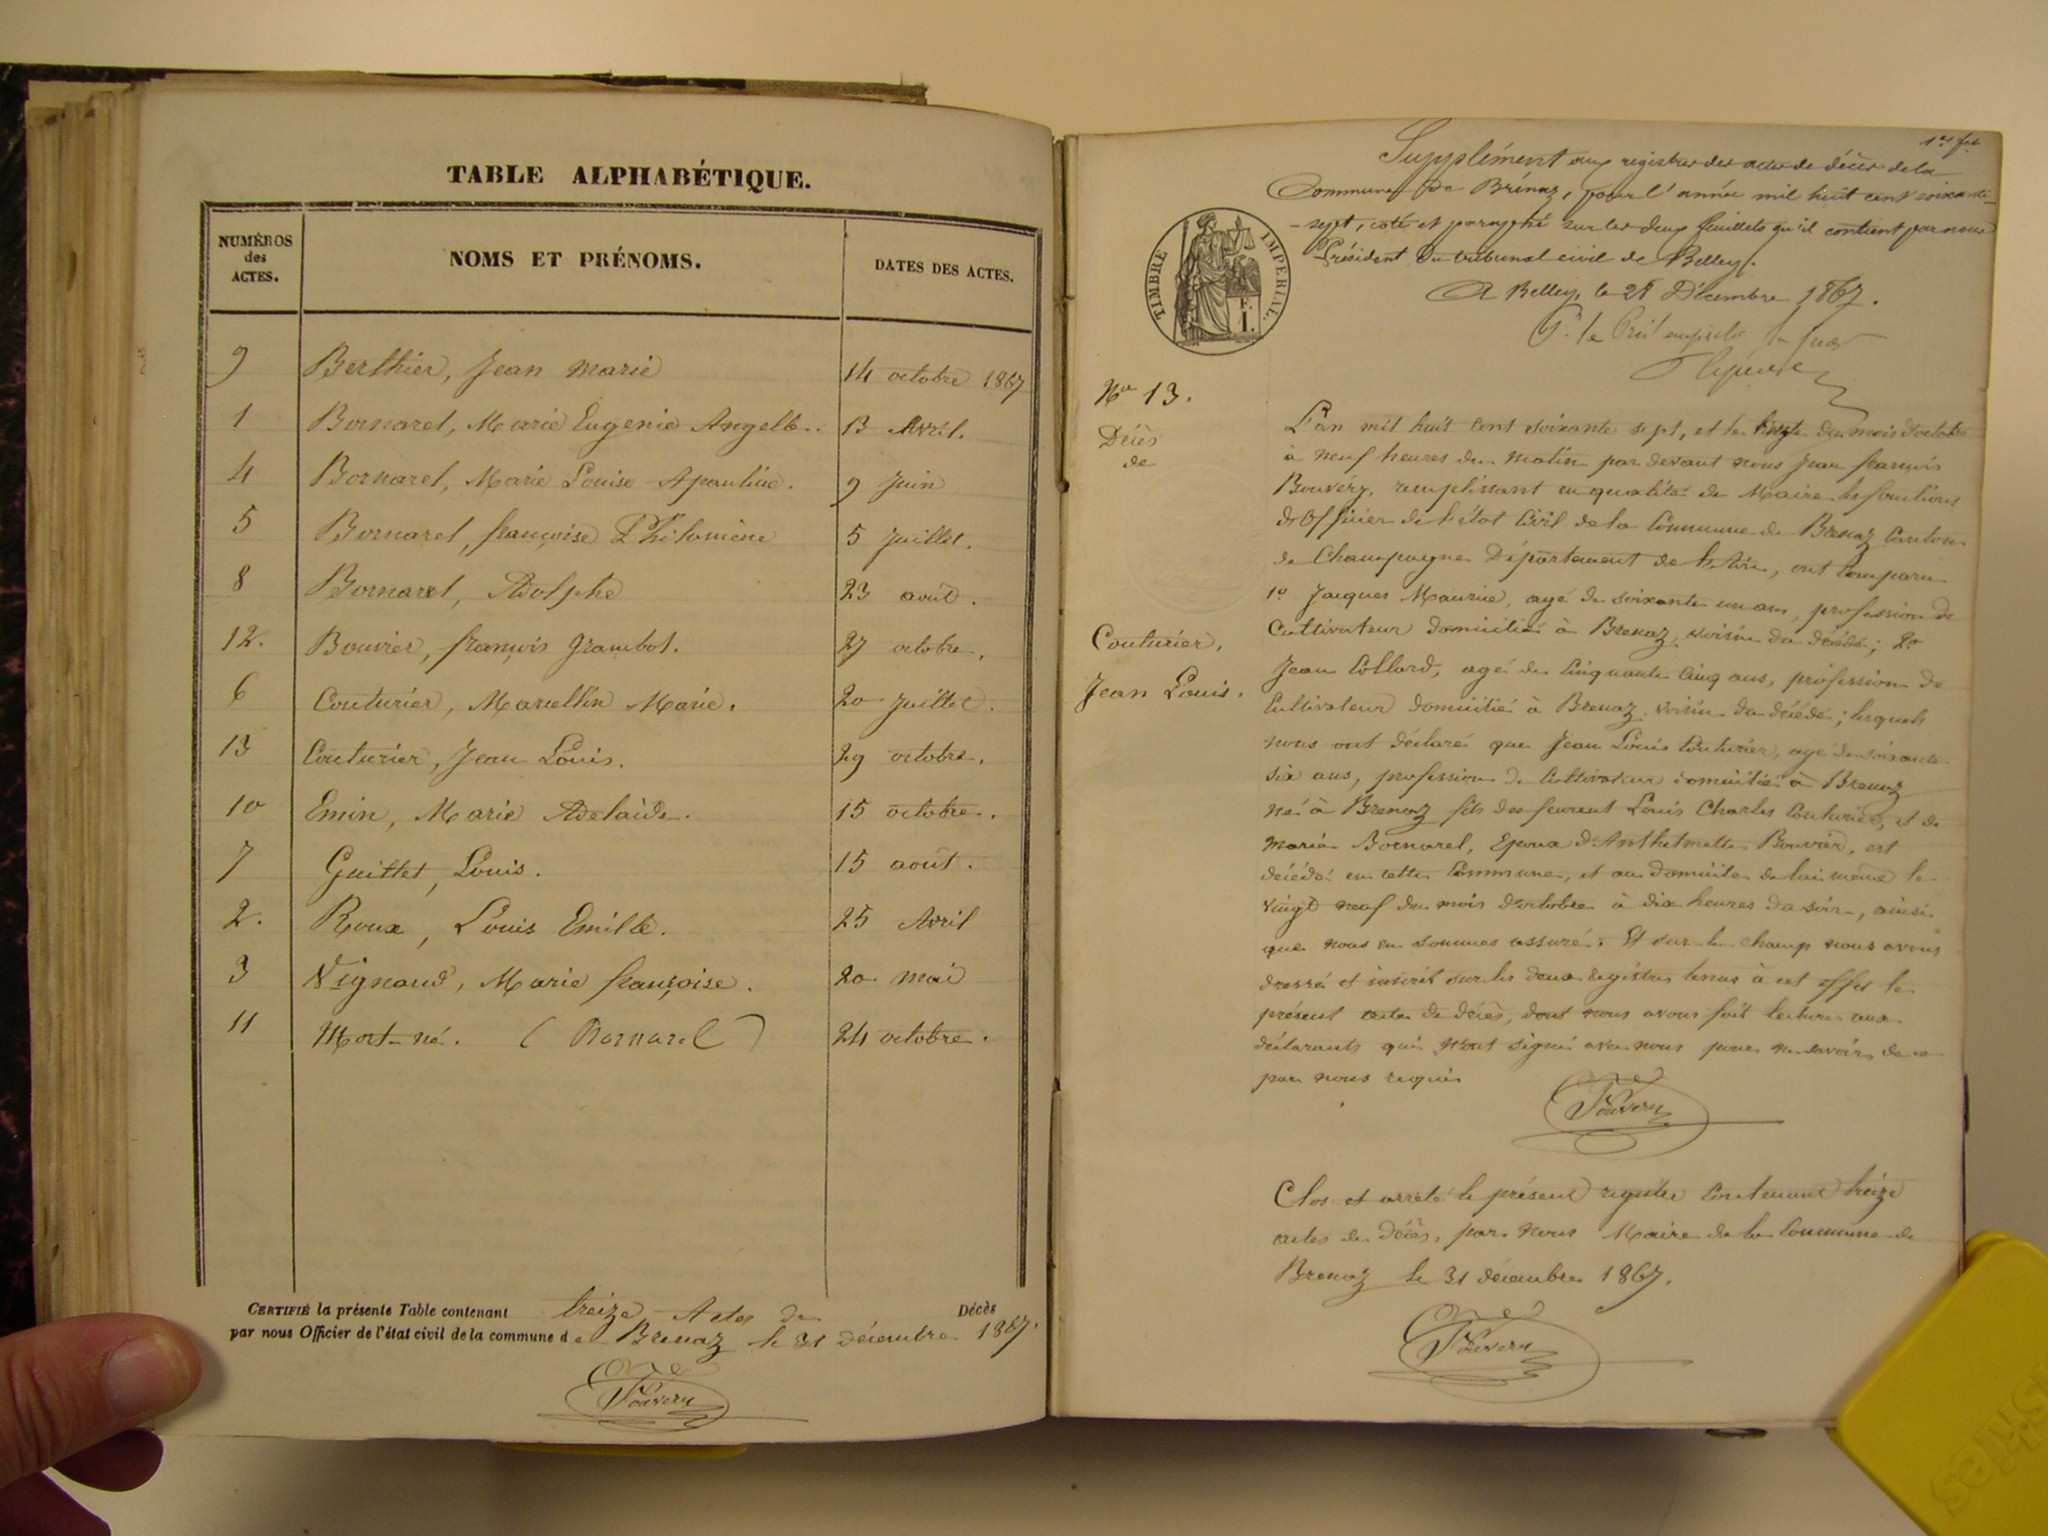 TABLE ALPHABÉTIQUE.
NUMÉROS des ACTES. NOMS ET PRÉNOMS. DATES DES ACTES.
9 Berthier, Jean Marie 14 octobre 1867
1 Bornarel, Marie Eugenie Angelle. 13 Avril.
4 Bornarel, Marie Louise Apauline. 9 Juin
5 Bornarel, françoise Philomène 5 Juillet.
8 Bornarel, Adolphe 23 août.
12. Bouvier, françois Grambot. 27 octobre.
6 Couturier, Marcellin Marie. 20 Juillet.
13 Couturier, Jean Louis. 29 octobre.
10 Emin, Marie Adelaide. 15 octobre.
7 Guillet, Louis. 15 août.
2. Roux, Louis Emille. 25 Avril
3 Vignaud, Marie françoise. 20 mai
11 Mort-né. (Bornarel) 24 octobre.
CERTIFIÉ la présente Table contenant treize Actes de Décès
par nous Officier de l'état civil de la commune de Brenaz le 31 décembre 1867.
Bouvery
Supplément aux registres des actes de décès de la
Commune de Brénaz, pour l'année mil huit cent soixante
-sept, coté et paraphé sur les deux feuillets qu'il contient par nous
Président du tribunal civil de Belley.
A Belley, le 28 Décembre 1867.
TIMBRE IMPÉRIAL.
F.
1.
No 13.
Décès
de
Couturier,
Jean Louis.
L'an mil huit cent soixante sept, et le trente du mois d'octobre
à neuf heures du matin par devant nous Jean françois
Bouvéry, remplissant en qualité de Maire les fonctions
d'Officier de l'état Civil de la Commune de Brenaz Canton
de Champagne Département de l'Ain, ont comparu
1o Jacques Maurice, agé de soixante un ans, profession de
Cultivateur domicilié à Brenaz, voisin du décédé; 2o
Jean Collard, agé de Cinquante Cinq ans, profession de
Cultivateur domicilié à Brenaz voisin du décédé; lesquels
nous ont déclaré que Jean Louis Couturier, agé de soixante
six ans, profession de Cultivateur domicilié à Brenaz
né à Brenaz fils de feurent Louis Charles Couturier, et de
Marie Bornarel, Epoux d'Anthelmette Bouvier, est
décédé en cette Commune, et au domicile de lui même le
vingt neuf du mois d'octobre à dix heures du soir, ainsi
que nous en sommes assuré. Et sur le champ nous avons
dressé et inscrit sur les deux registres tenus à cet effet le
présent acte de décès, dont nous avons fait lecture aux
déclarants qui n'ont signé avec nous pour ne savoir de ce
par nous requis
Bouvery
Clos et arrêté le présent registre Contenant treize
actes de Décès, par Nous Maire de la Commune de
Brenaz le 31 décembre 1867.
Bouvery